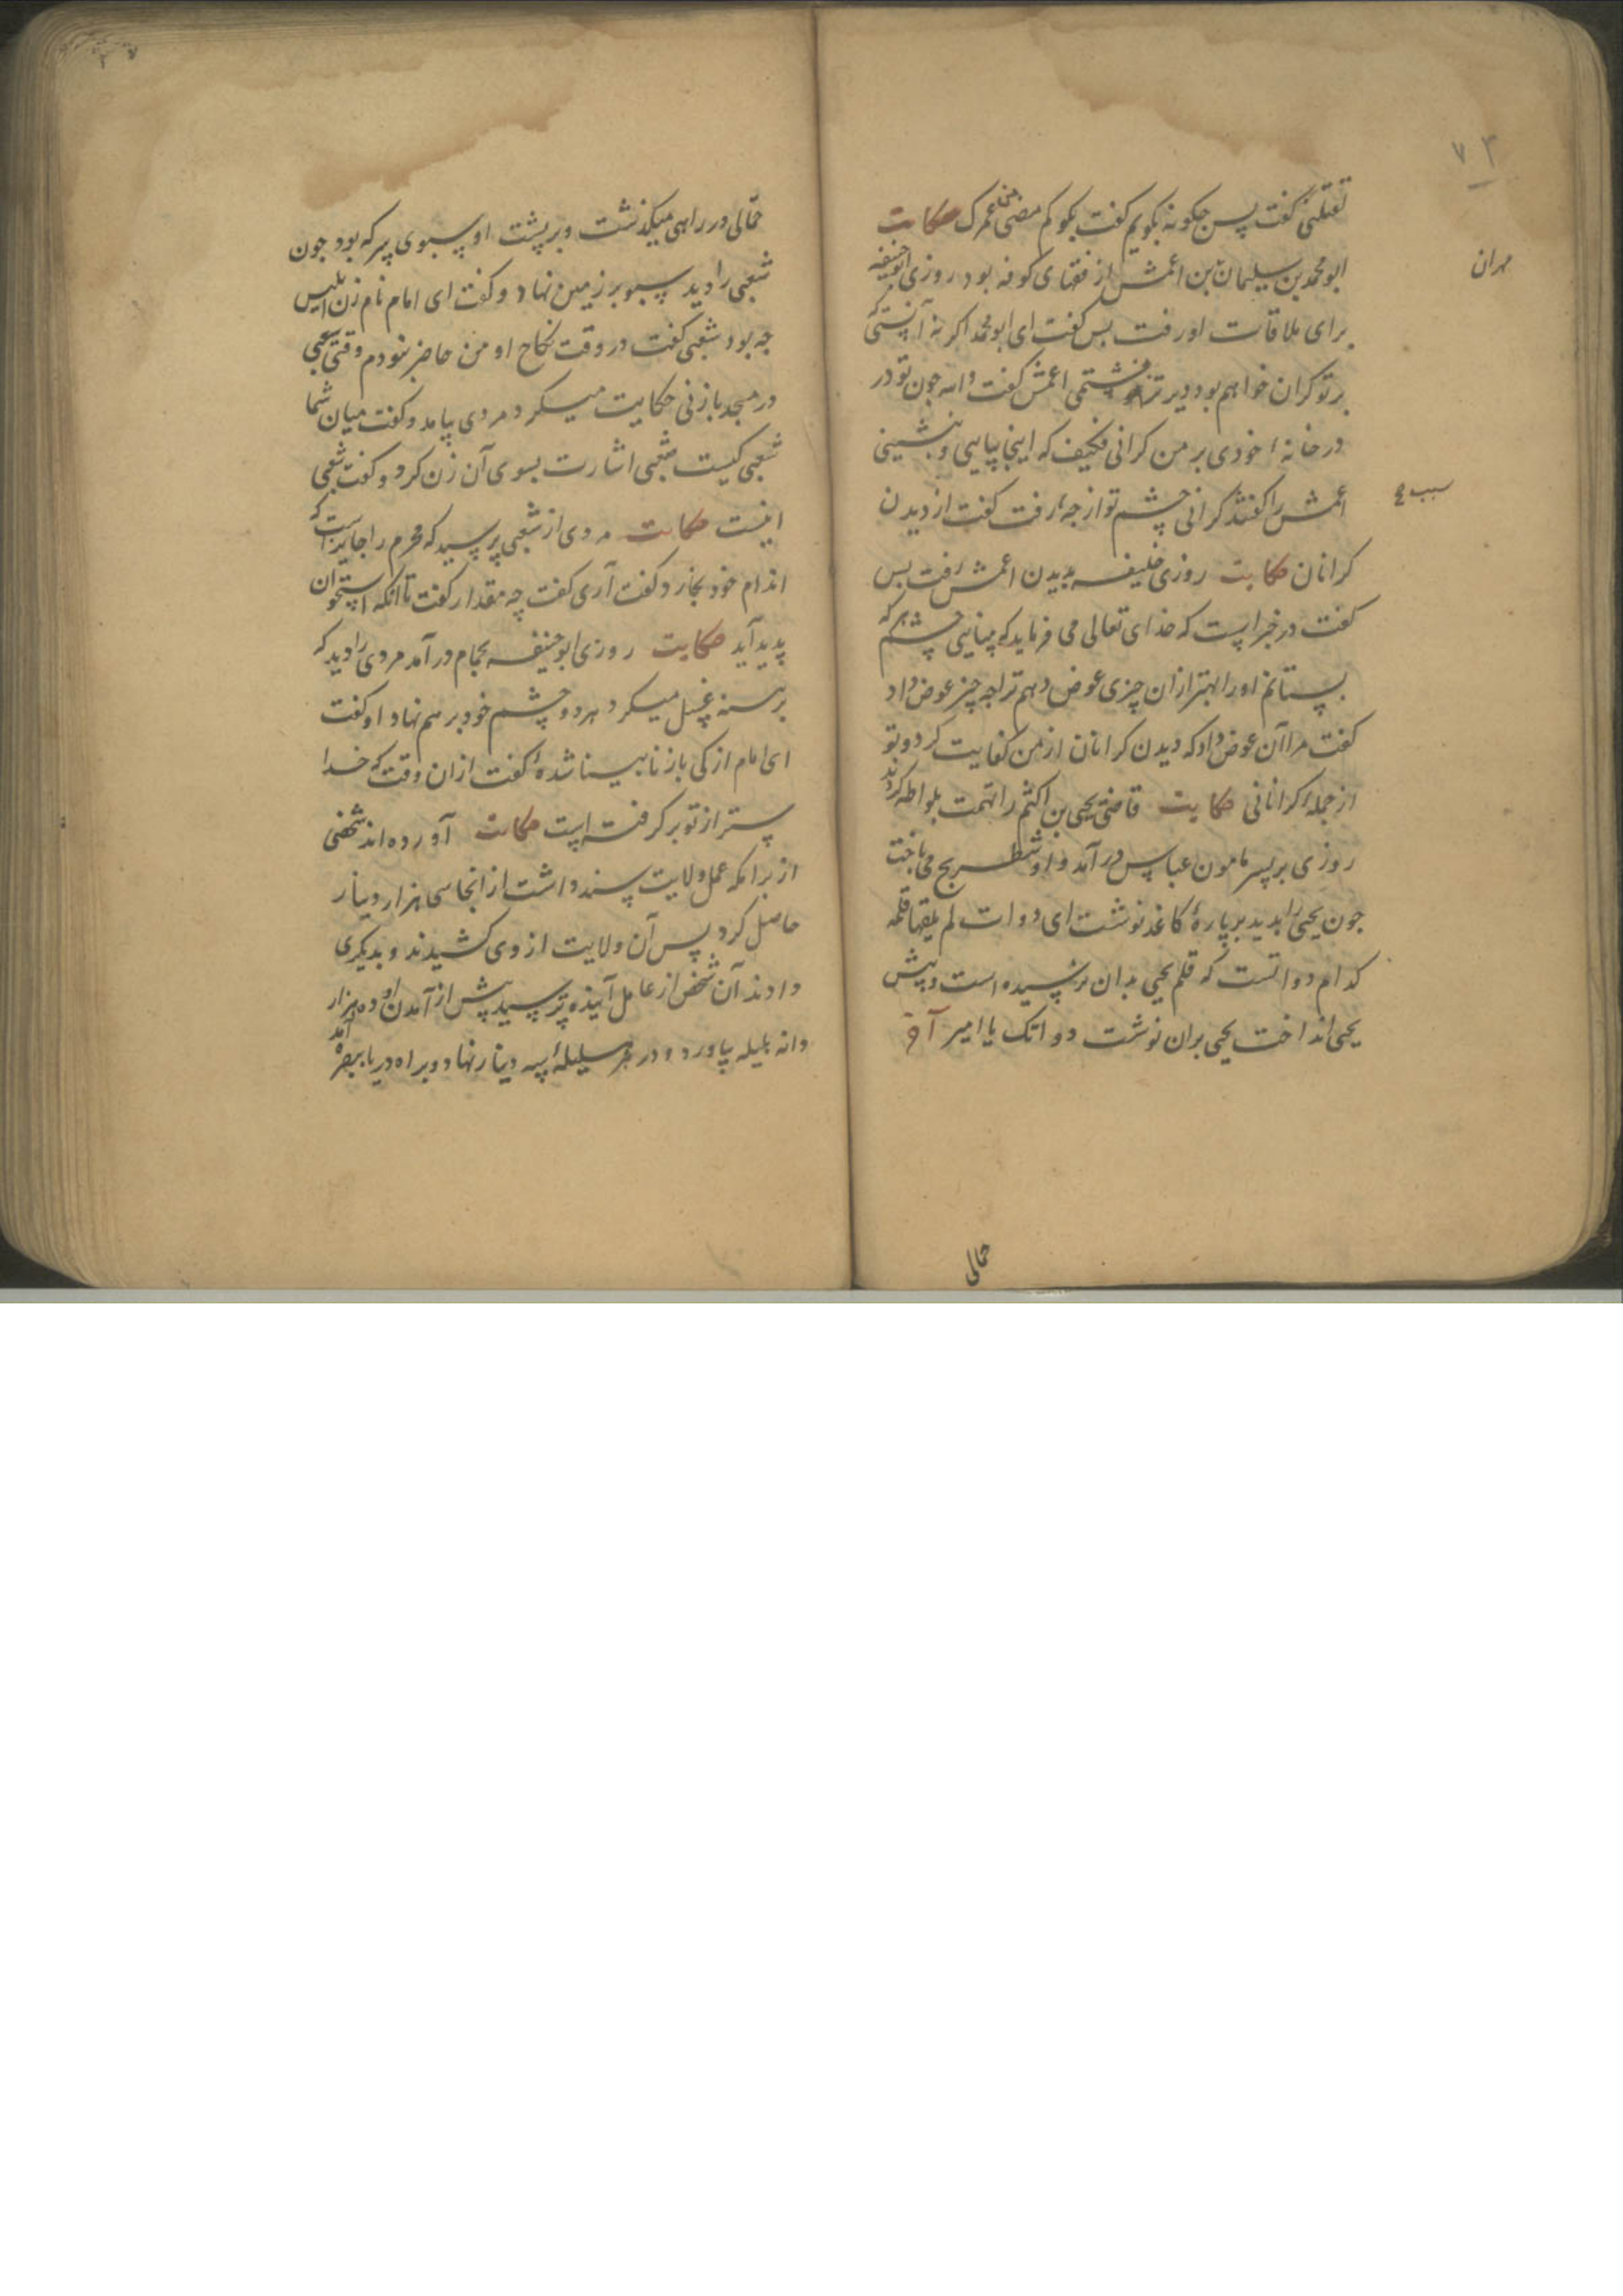 ۷۴
تقتلنی گفت پس چکونه بکویم گفت بکو کم مضی من عمرک حکایت
مهران
ابو محمد بن سلیمان بن اعمش از فقهای کوفه بود روزی ابوحنیفه
برای ملاقات او رفت بس گفت ای ابو محمد اکر نه آنستی که
بر تو کران خواهم بود دیرتر نشستمی اعمش گفت والله جون تو در
در خانهٔ خودی بر من کرانی فکیف که اینجا بیایی و بنشینی
سبب
اعمش را گفتند کرانی چشم تو از جه رفت گفت از دیدن
کرانان حکایت روزی خلیفه بدیدن اعمش رفت بس
گفت در خبر است که خدای تعالی می فرماید که بینایی چشم هر که
بستانم او را بهتر از ان چیزی عوض دهم ترا چه چیز عوض داد
گفت مرا آن عوض داد که دیدن کرانان از من کفایت کرد و تو
از جملهٔ کرانانی حکایت قاضی یحیی بن اکثم را تهمت بلواطه کردند
روزی بر پسر مامون عباس در آمد و او شطرنج می باخت
جون یحیی را بدید بر پارهٔ کاغذ نوشت ای دوات لم یلقها قلمه
کدام دواتست که قلم یحیی بدان نرسیده است و پیش
یحیی انداخت یحیی بران نوشت دواتک یا امیر
حمالی
حمالی در راهی میکذشت و بر پشت او سبوی پر که بود جون
شعبی را دید سبو بر زمین نهاد و گفت ای امام نام زن ابلیس
جه بود شعبی گفت در وقت نکاح او من حاضر نبودم وقتی شعبی
در مسجد با زنی حکایت میکرد مردی بیامد و گفت میان شما
شعبی کیست شعبی اشارت بسوی آن زن کرد و گفت شعبی
اینست حکایت مردی از شعبی پرسید که محرم را جایز است که
اندام خود بخارد گفت آری گفت چه مقدار گفت تا آنکه استخوان
پدید آید حکایت روزی ابو حنیفه بحمام در آمد مردی را دید که
برهنه غسل میکرد هر دو چشم خود بر هم نهاد او گفت
ای امام از کی باز نابینا شدهٔ گفت از ان وقت که خدا
ستر از تو بر کرفته است حکایت آورده اند شخصی
از برامکه عمل ولایت سند داشت از انجا سی هزار دینار
حاصل کرد پس آن ولایت از وی کشیدند و بدیکری
دادند آن شخص از عامل آینده ترسید پیش از آمدن او ده هزار
دانه بلیله بیاورد و در هر بلیلهٔ سه دینار نهاد و براه دریا ببصره آمد